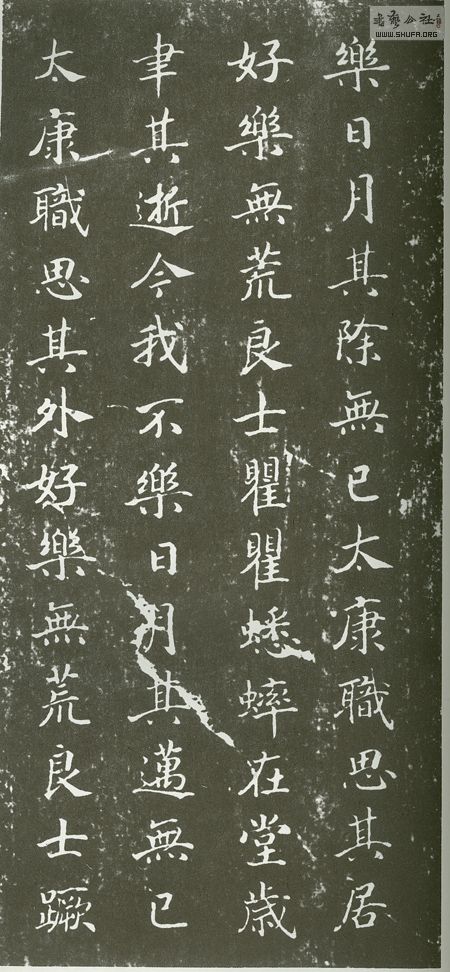 樂日月其除無已太康職思其居
好樂無荒良士瞿瞿蟋蟀在堂歲
聿其逝今我不樂日月其邁無已
太康職思其外好樂無荒良士蹶
書藝公社
WWW.SHUFA.ORG